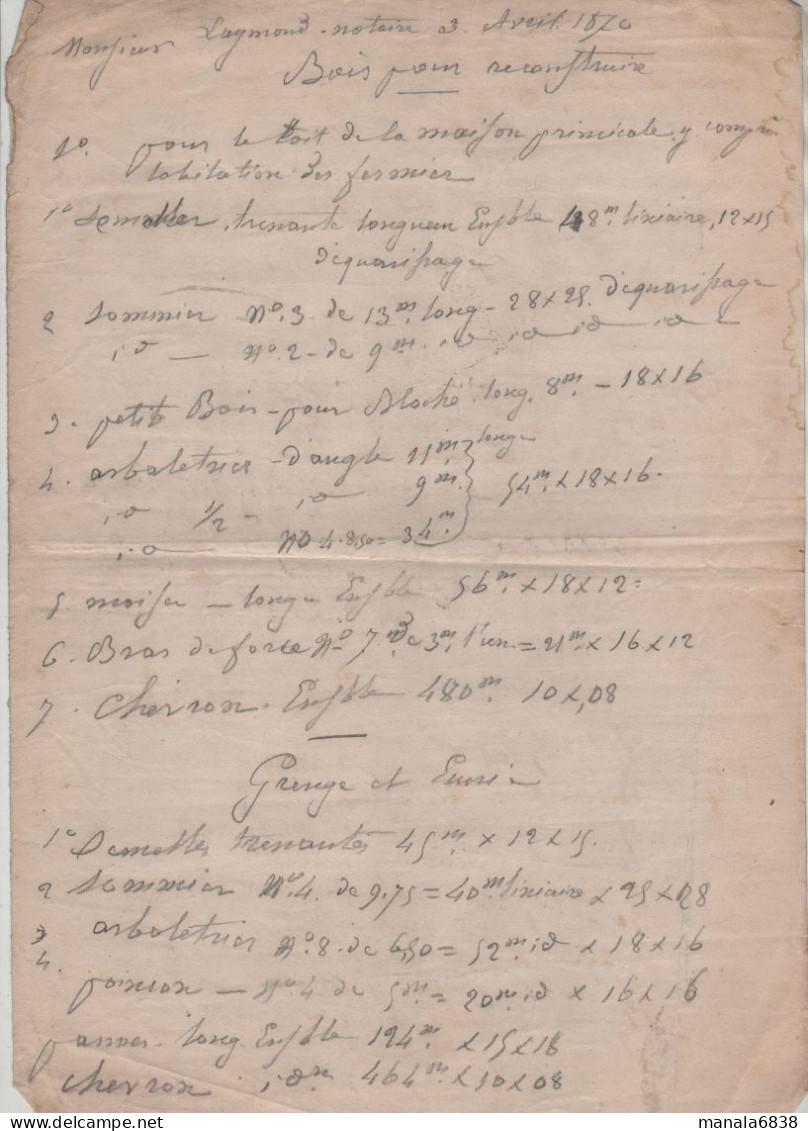 Monsieur Laymond notaire 3 Avril 1870
Bois pour reconstruire
1o. pour le toit de la maison principale y compris
labitation des fermier
1o Semelles trenante longueur Ensble 48m liniaire, 12x15
d'equarissage
2 Sommier No. 3 de 13m long - 28x25 d'equarissage
id — No. 2 - de 9m id id id id
3 - petit Bois - pour Bloché long. 8m - 18x16
4. arbaletrier - d'angle 11m longr
id 1/2 - id 9m. 54m x 18x16.
id No 4. 8,50 = 34m
5. moise — longr Ensble 56m x 18x12 =
6. Bras de force No 7 de 3m l'un = 21m x 16x12
7. Chevron. Ensble 480m 10x,08
Grenge et Ecurie
1o Semelles trenantes 45m x 12x15.
2 Sommier No. 4. de 9.75 = 40m liniaire x 25x28
3 arbaletrier No. 8. de 6,50 = 52m id x 18x16
4. poincon — No 4 de 5m = 20m id x 16x16
pannes long Ensble 124m x 15x18
Chevron idm 464m x 10x08
manala6838